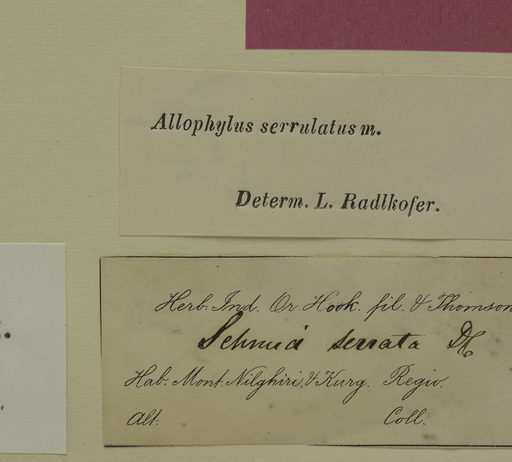 Allophylus serrulatus m.
Determ. L. Radlkofer.
Herb. Ind. Or. Hook. fil. & Thomson
Schmid serrata DC
Hab. Mont. Nilghiri & Kurg. Regio.
Alt. Coll.